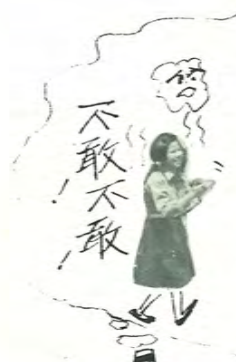 不敢！不敢！